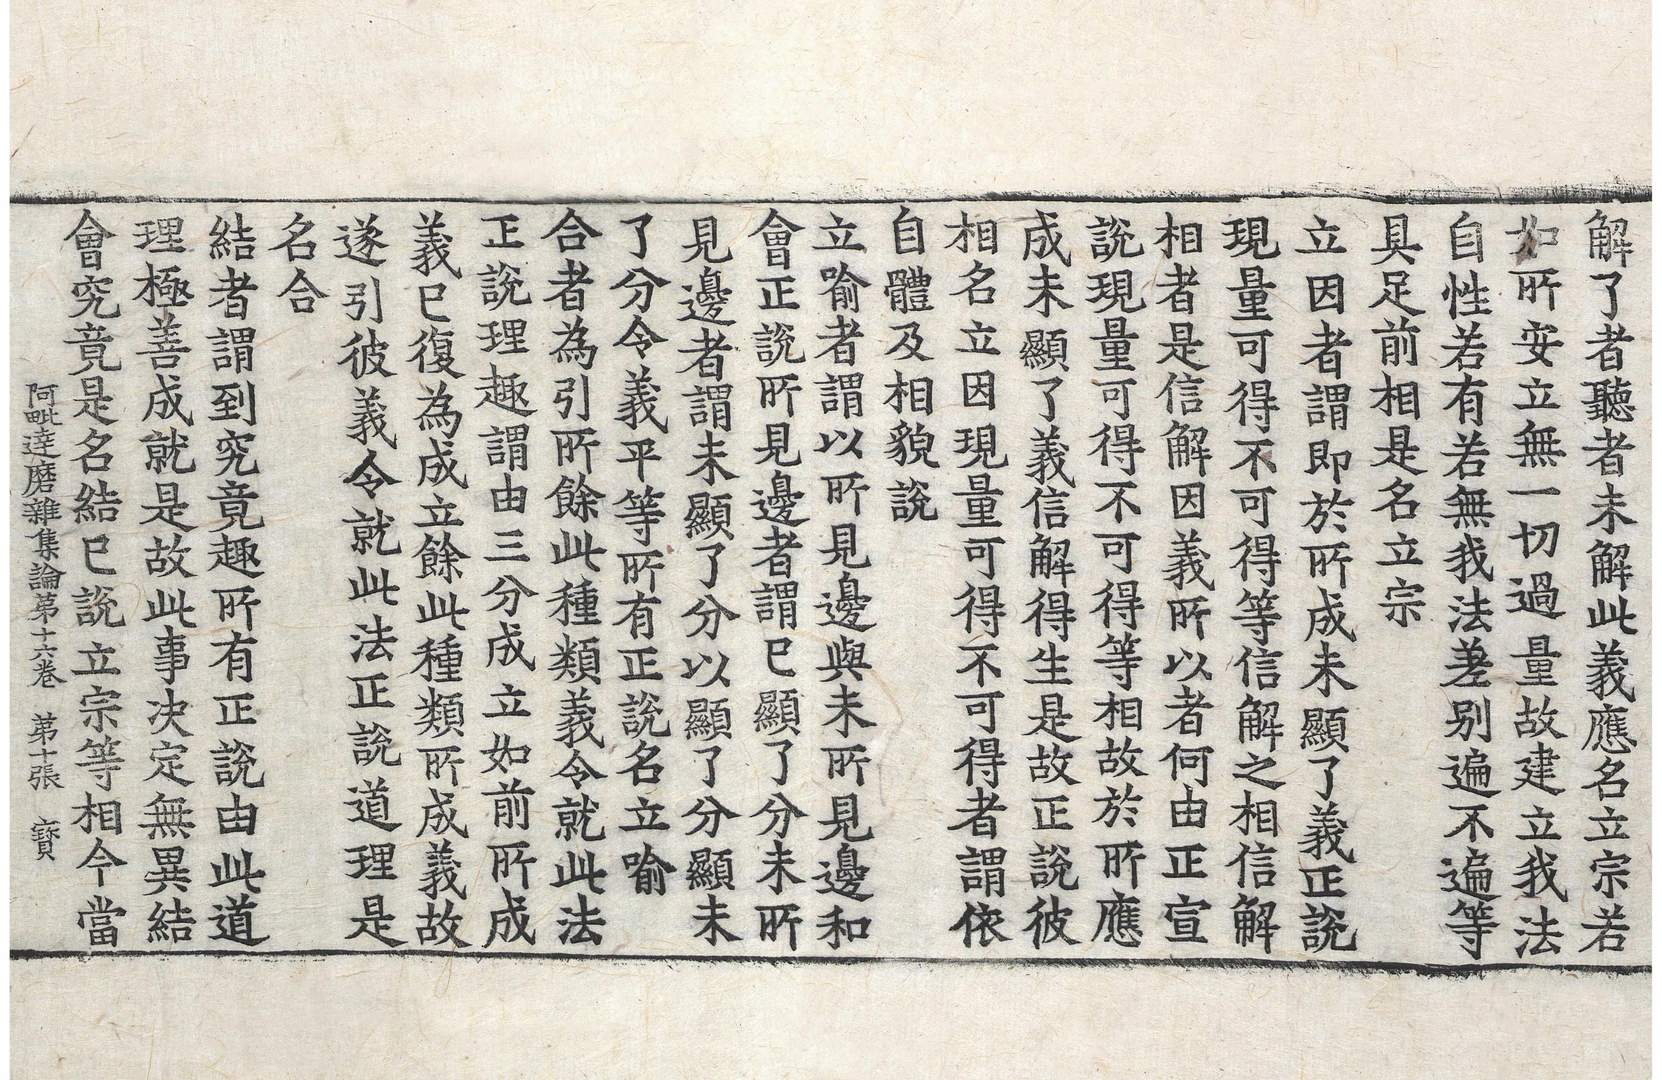 解了者聽者未解此義應名立宗若
如所安立無一切過量故建立我法
自性若有若無我法差別遍不遍等
具足前相是名立宗
立因者謂即於所成未顯了義正說
現量可得不可得等信解之相信解
相者是信解因義所以者何由正宣
說現量可得不可得等相故於所應
成未顯了義信解得生是故正說彼
相名立因現量可得不可得者謂依
自體及相貌說
立喻者謂以所見邊與未所見邊和
會正說所見邊者謂已顯了分未所
見邊者謂未顯了分以顯了分顯未
了分令義平等所有正說名立喻
合者為引所餘此種類義令就此法
正說理趣謂由三分成立如前所成
義已復為成立餘此種類所成義故
遂引彼義令就此法正說道理是
名合
結者謂到究竟趣所有正說由此道
理極善成就是故此事決定無異結
會究竟是名結已說立宗等相今當
阿毗達磨雜集論第十六卷 第十張 寶